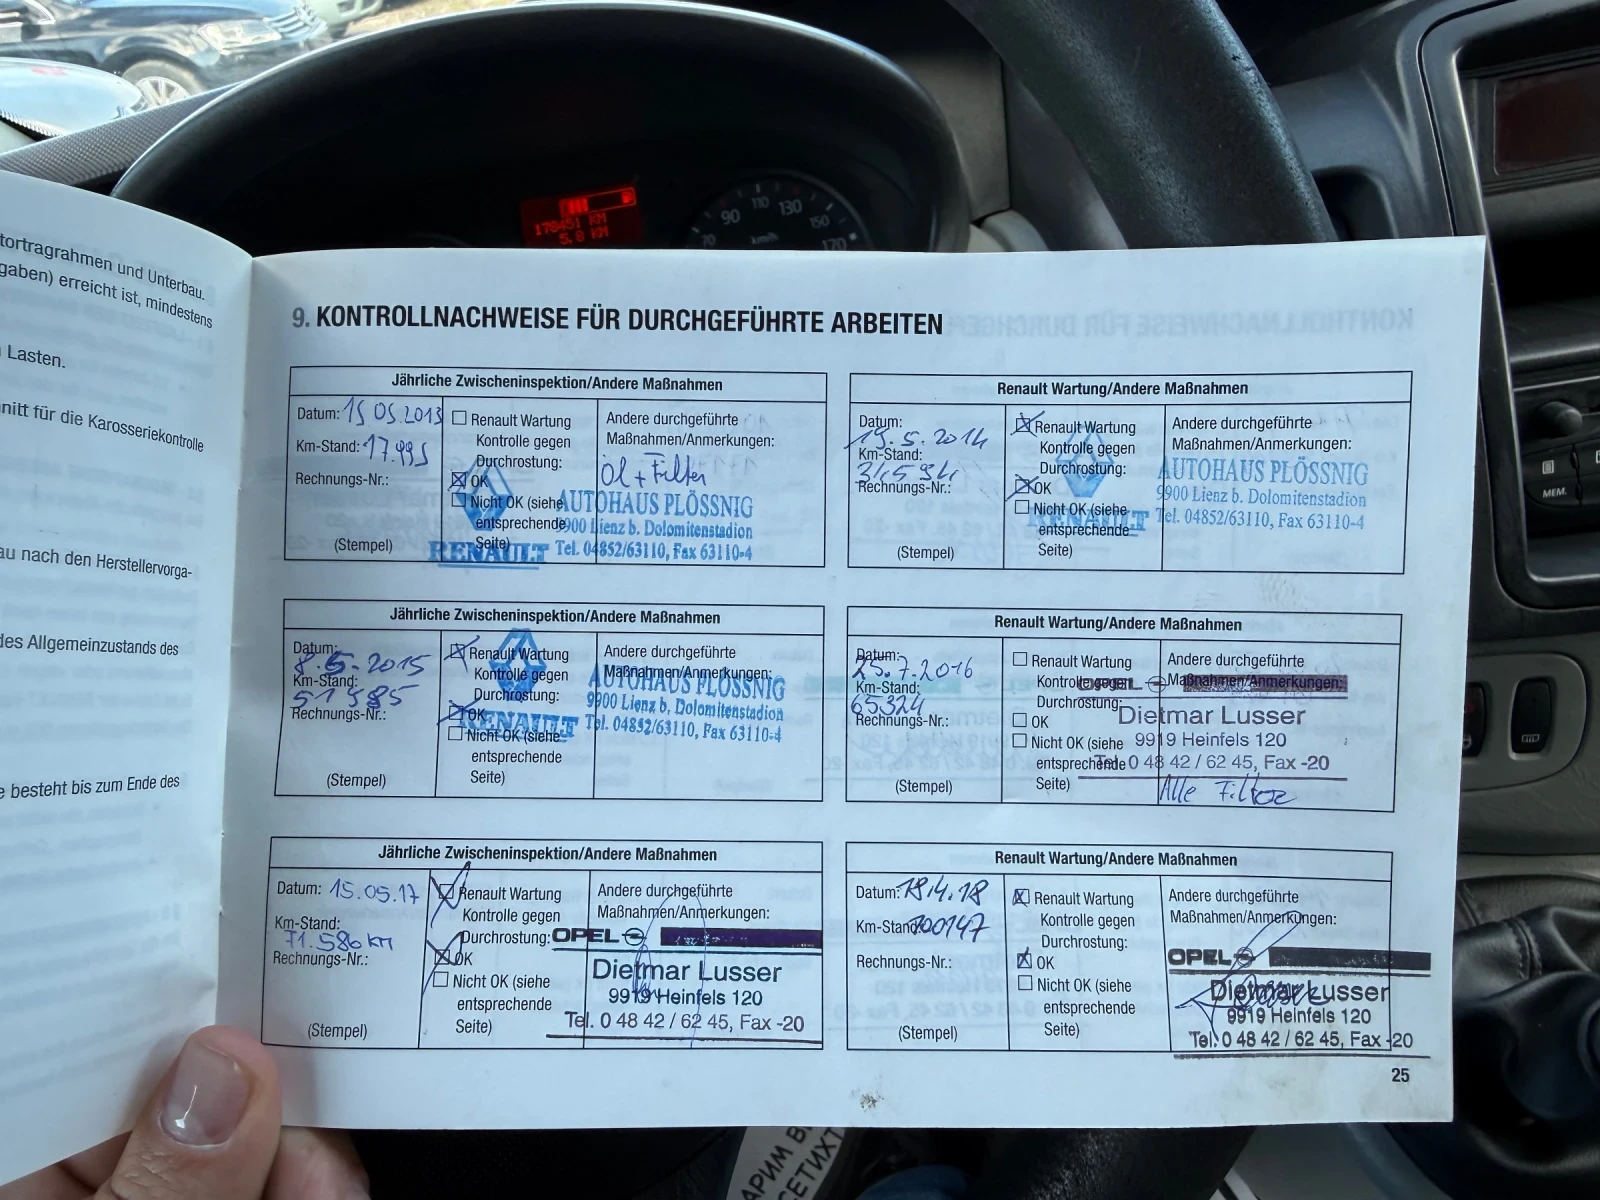 178451 KM
5.8 KM
70 90 110 130 150 170
km/h
MEM.
tortragrahmen und Unterbau.
gaben) erreicht ist, mindestens
Lasten.
nitt für die Karosseriekontrolle
au nach den Herstellervorga-
des Allgemeinzustands des
e besteht bis zum Ende des
9. KONTROLLNACHWEISE FÜR DURCHGEFÜHRTE ARBEITEN
Jährliche Zwischeninspektion/Andere Maßnahmen
Datum: 15 05.2013
Km-Stand: 17.995
Rechnungs-Nr.:
(Stempel)
Renault Wartung
Kontrolle gegen
Durchrostung:
OK
Nicht OK (siehe
entsprechende
Seite)
Andere durchgeführte
Maßnahmen/Anmerkungen:
Öl + Filter
RENAULT
AUTOHAUS PLÖSSNIG
9900 Lienz b. Dolomitenstadion
Tel. 04852/63110, Fax 63110-4
Renault Wartung/Andere Maßnahmen
Datum:
15.5.2014
Km-Stand:
34594
Rechnungs-Nr.:
(Stempel)
Renault Wartung
Kontrolle gegen
Durchrostung:
OK
Nicht OK (siehe
entsprechende
Seite)
Andere durchgeführte
Maßnahmen/Anmerkungen:
RENAULT
AUTOHAUS PLÖSSNIG
9900 Lienz b. Dolomitenstadion
Tel. 04852/63110, Fax 63110-4
Jährliche Zwischeninspektion/Andere Maßnahmen
Datum:
8.5.2015
Km-Stand:
51985
Rechnungs-Nr.:
(Stempel)
Renault Wartung
Kontrolle gegen
Durchrostung:
OK
Nicht OK (siehe
entsprechende
Seite)
Andere durchgeführte
Maßnahmen/Anmerkungen:
RENAULT
AUTOHAUS PLÖSSNIG
9900 Lienz b. Dolomitenstadion
Tel. 04852/63110, Fax 63110-4
Renault Wartung/Andere Maßnahmen
Datum:
25.7.2016
Km-Stand:
65324
Rechnungs-Nr.:
(Stempel)
Renault Wartung
Kontrolle gegen
Durchrostung:
OK
Nicht OK (siehe
entsprechende
Seite)
Andere durchgeführte
Maßnahmen/Anmerkungen:
OPEL
Dietmar Lusser
9919 Heinfels 120
Tel. 0 48 42 / 62 45, Fax -20
Alle Filter
Jährliche Zwischeninspektion/Andere Maßnahmen
Datum: 15.05.17
Km-Stand:
71.586 km
Rechnungs-Nr.:
(Stempel)
Renault Wartung
Kontrolle gegen
Durchrostung:
OK
Nicht OK (siehe
entsprechende
Seite)
Andere durchgeführte
Maßnahmen/Anmerkungen:
OPEL
Dietmar Lusser
9919 Heinfels 120
Tel. 0 48 42 / 62 45, Fax -20
Renault Wartung/Andere Maßnahmen
Datum: 18.4.18
Km-Stand: 100147
Rechnungs-Nr.:
(Stempel)
Renault Wartung
Kontrolle gegen
Durchrostung:
OK
Nicht OK (siehe
entsprechende
Seite)
Andere durchgeführte
Maßnahmen/Anmerkungen:
OPEL
Dietmar Lusser
9919 Heinfels 120
Tel. 0 48 42 / 62 45, Fax -20
25